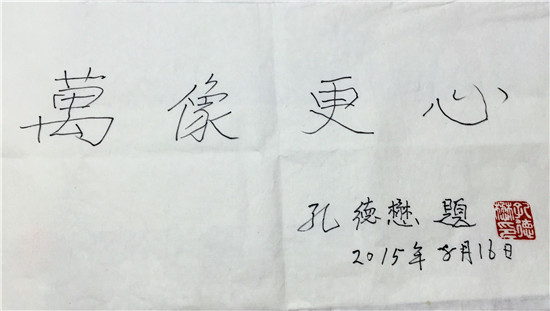 萬像更心
孔德懋題
2015年8月16日
孔德懋印